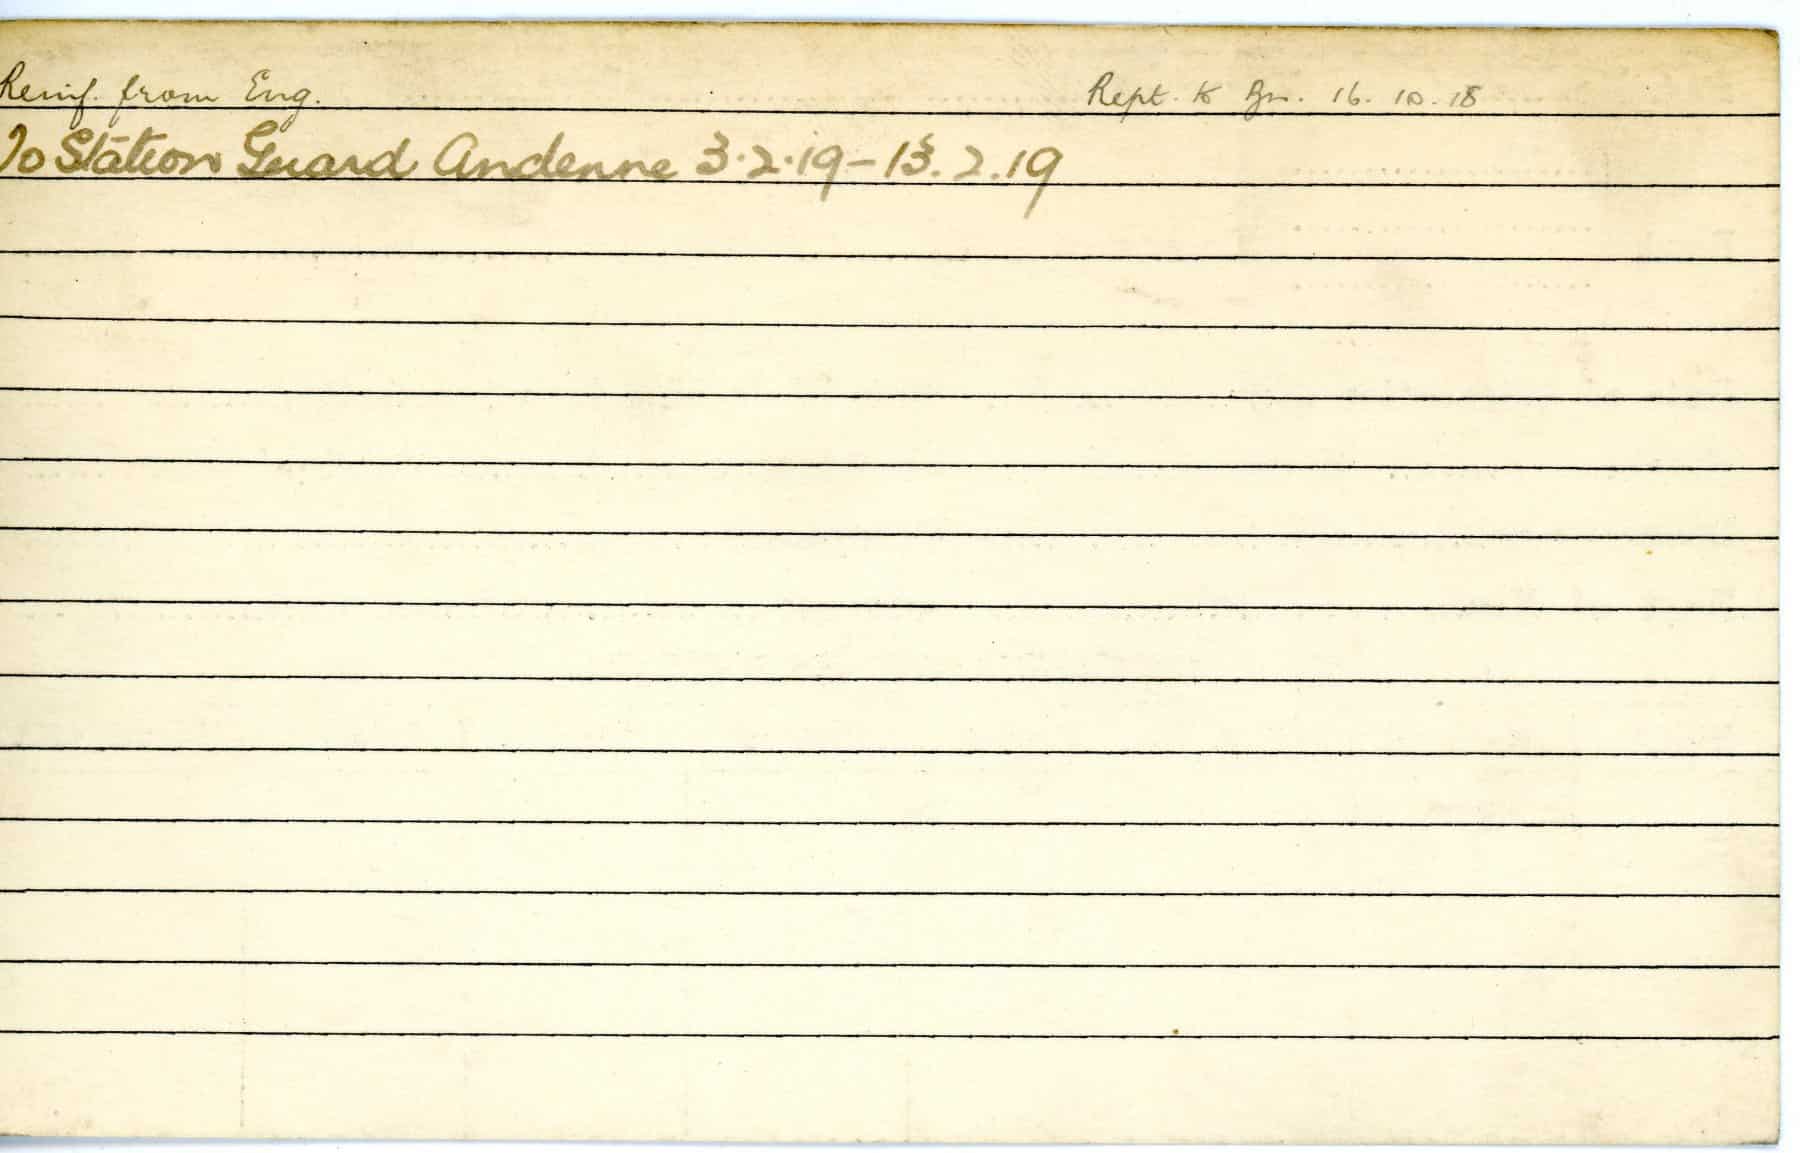 Reinf. from Eng. Rept. to Bn. 16.10.18
To Station Guard Andenne 3.2.19-13.2.19